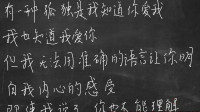 有一种孤独是我知道你爱我
我也知道我爱你
但我无法用准确的语言让你明
白我内心的感受
即使我说了 你也不能理解